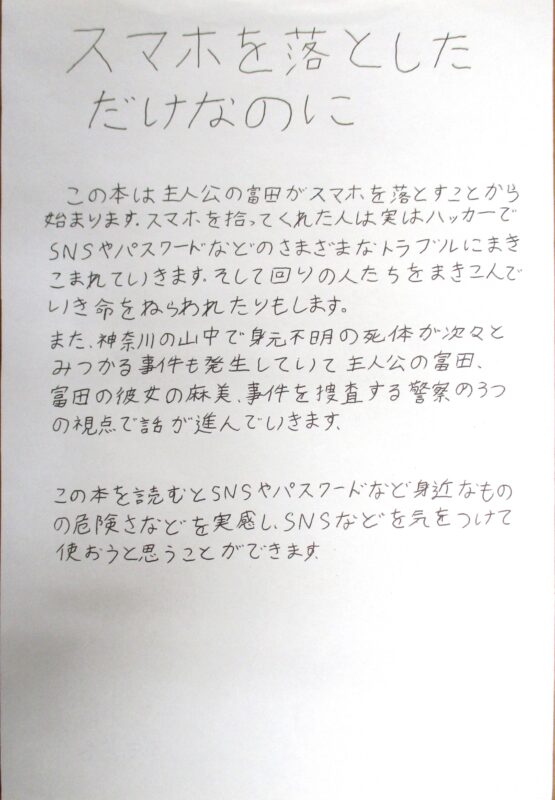 スマホを落とした
だけなのに
この本は主人公の富田がスマホを落とすことから
始まります。スマホを拾ってくれた人は実はハッカーで
SNSやパスワードなどのさまざまなトラブルにまき
こまれていきます。そして回りの人たちをまきこんで
いき命をねらわれたりもします。
また、神奈川の山中で身元不明の死体が次々と
みつかる事件も発生していて主人公の富田、
富田の彼女の麻美、事件を捜査する警察の3つ
の視点で話が進んでいきます。
この本を読むとSNSやパスワードなど身近なもの
の危険さなどを実感し、SNSなどを気をつけて
使おうと思うことができます。